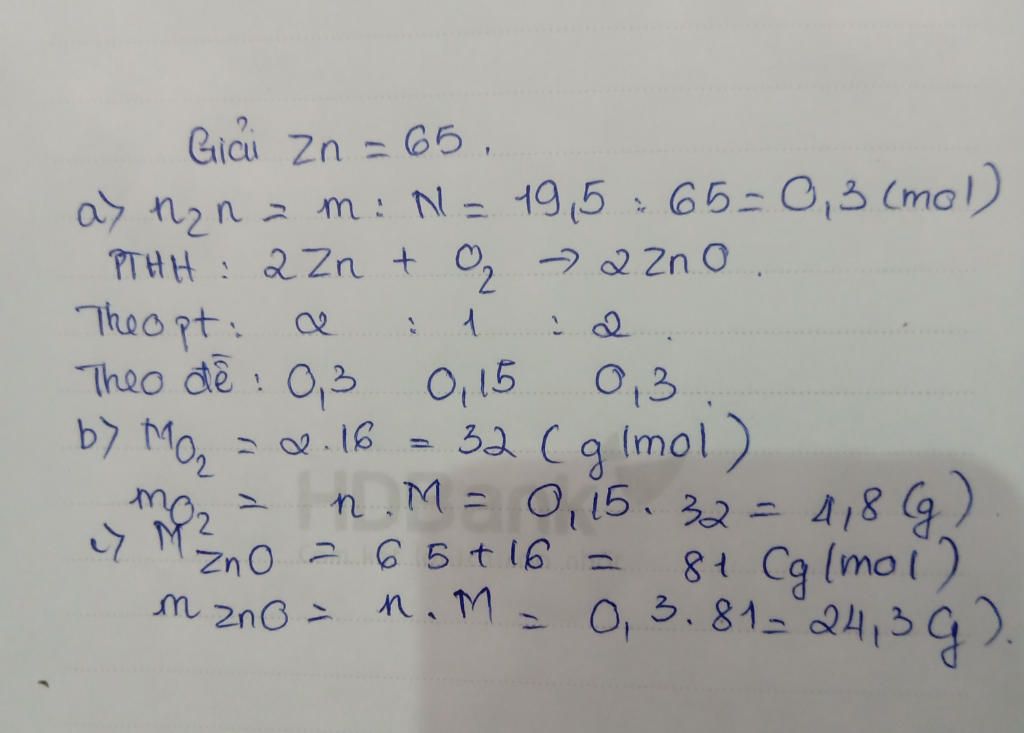 Giải Zn = 65.
a) nZn = m : N = 19,5 : 65 = 0,3 (mol)
PTHH : 2 Zn + O2 → 2 ZnO.
Theo pt : 2 : 1 : 2.
Theo đề : 0,3 0,15 0,3.
b) MO2 = 2.16 = 32 (g/mol)
mO2 = n.M = 0,15. 32 = 4,8 (g)
c) MZnO = 65 + 16 = 81 (g/mol)
m ZnO = n.M = 0,3.81 = 24,3 g).
HDBank